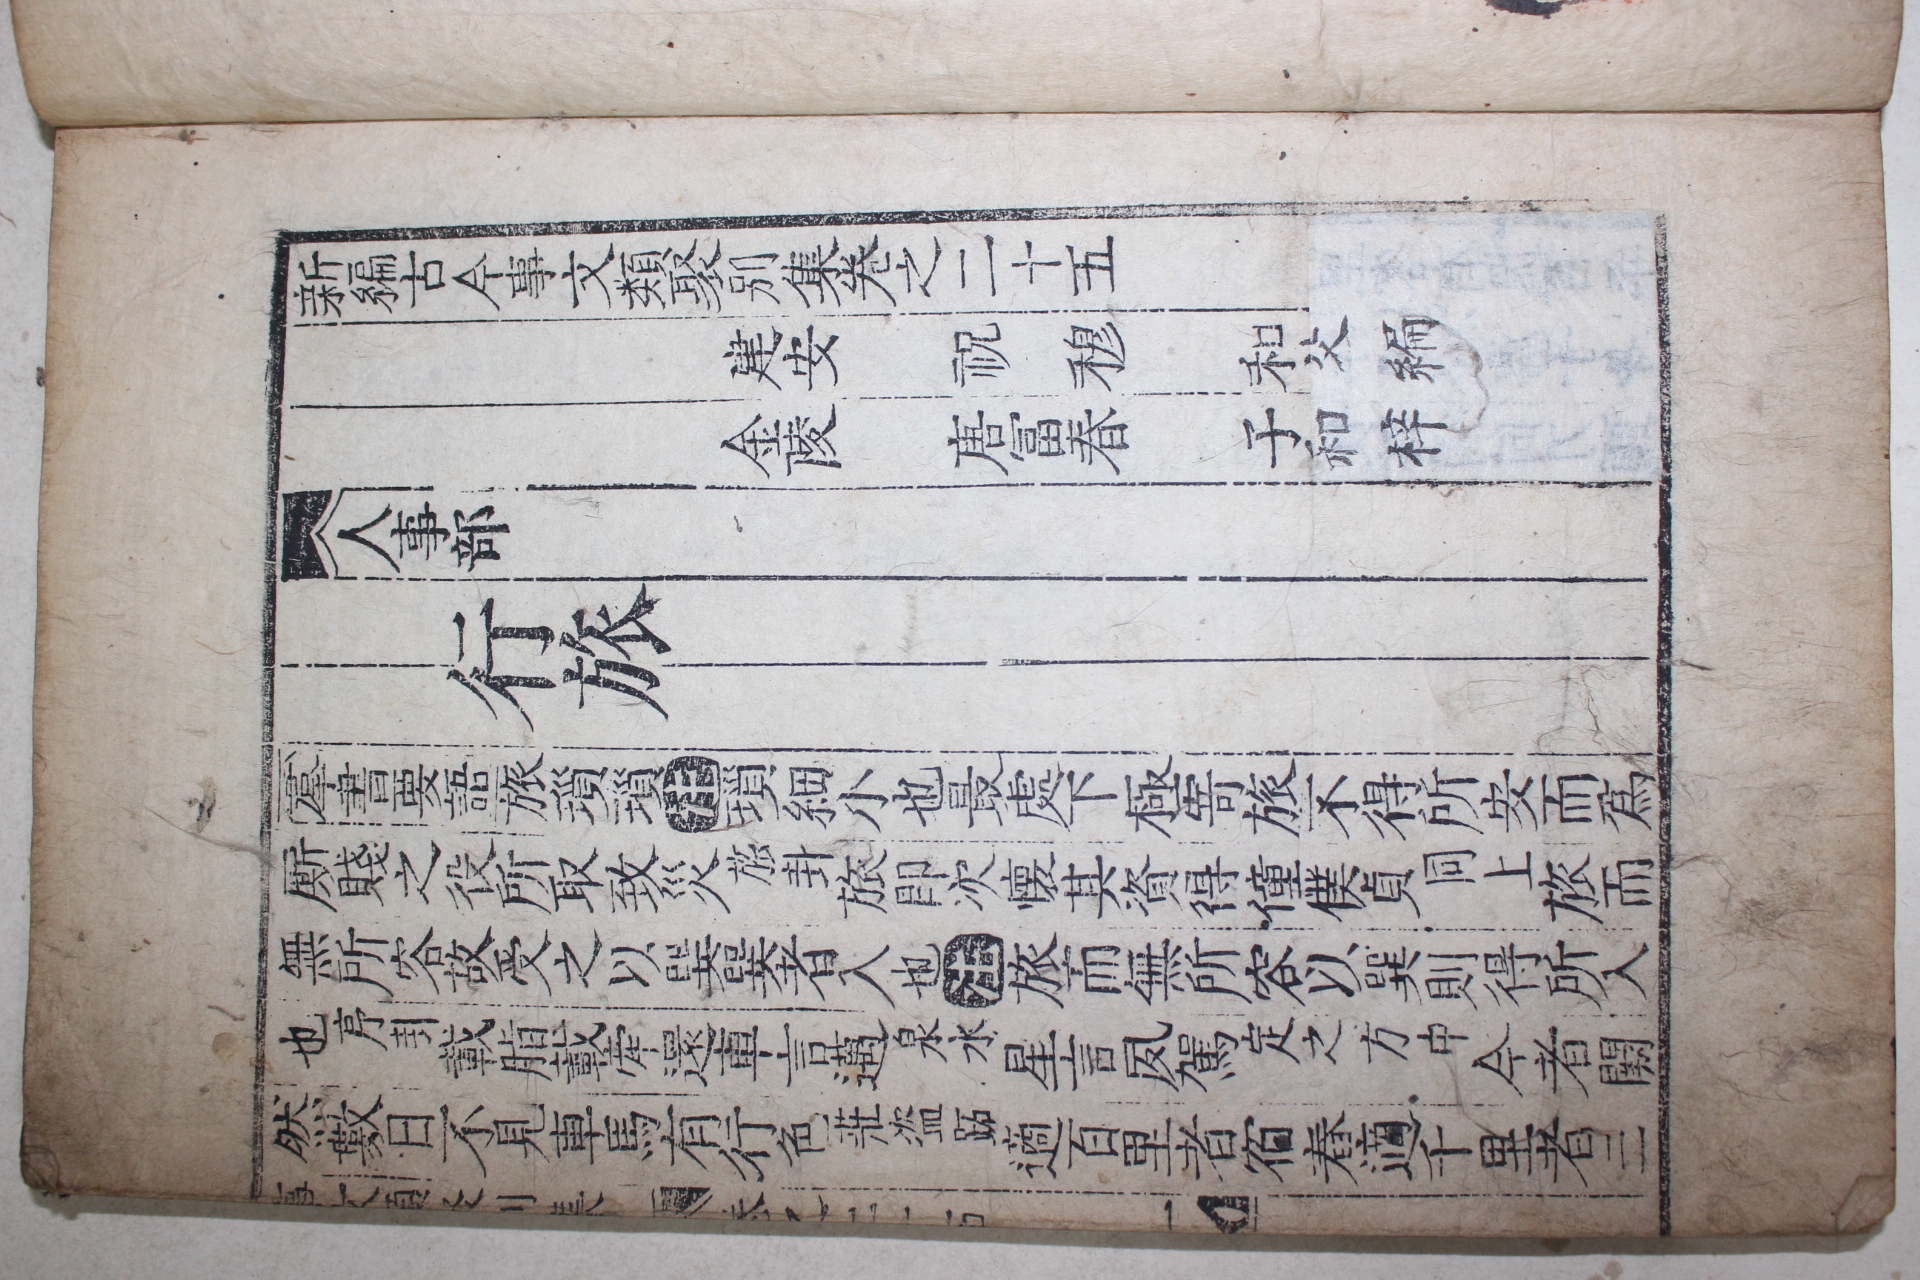 新編古今事文類聚別集卷之二十五
建安 祝 穆 和父 編
金陵 唐富春 子和 梓
人事部
行旅
羣書要語旅瑣瑣注瑣細小也最處下極寄旅不得所安而爲
厮賤之役所取致災旅卦旅卽次懷其資得僮僕貞同上旅而
無所容故受之以巽巽者入也注旅而無所容以巽則得所入
也序卦載脂載舝還車言邁泉水星言夙駕定之方中今者闕
然數日不見車馬有行色莊盜跖適百里者宿舂適千里者三